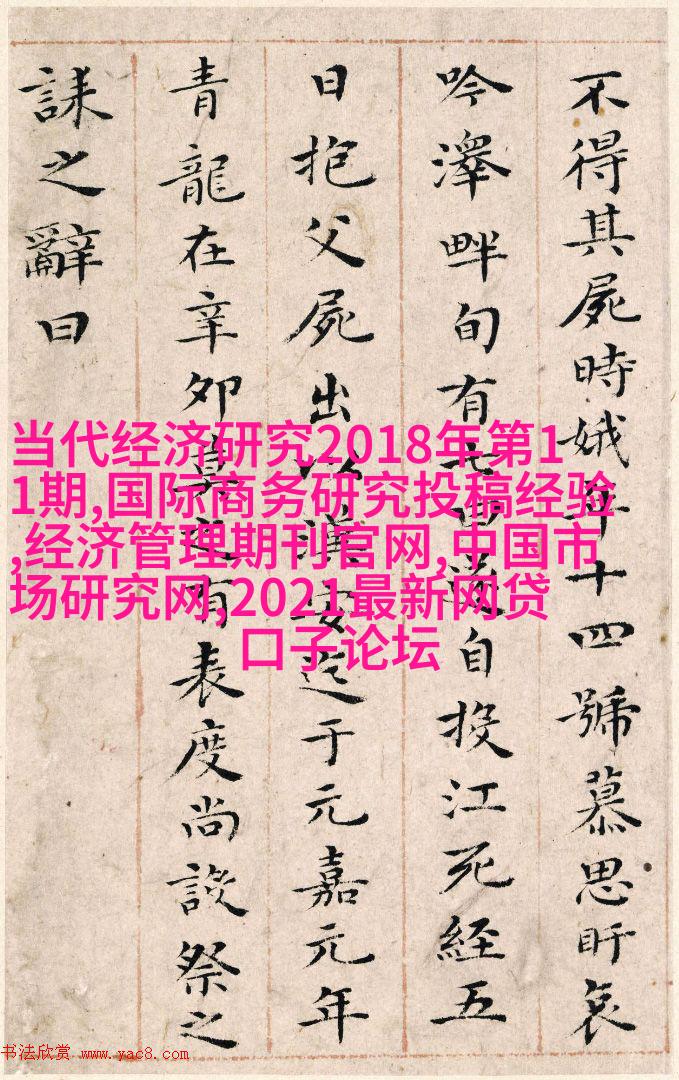 不得其屍時娥年十四號慕思盱哀
吟澤畔旬有七日遂自投江死經五
日抱父屍出以漢安迄于元嘉元年
青龍在辛卯莫之有表度尚設祭之
誄之辭曰
当代经济研究2018年第1
1期,国际商务研究投稿经验
,经济管理期刊官网,中国市
场研究网,2021最新网贷
口子论坛
书法欣赏 www.yac8.com